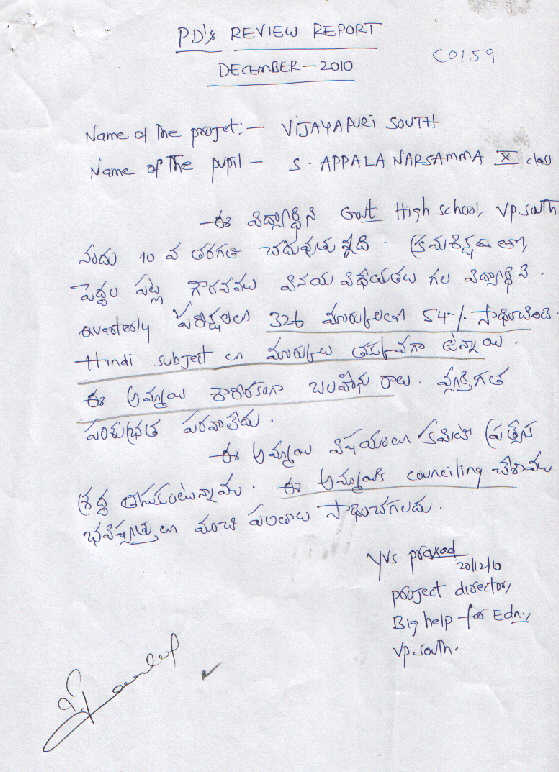 PD's REVIEW REPORT
DECEMBER-2010
C0159
Name of The project:- VIJAYAPURI SOUTH
Name of The pupil - S. APPALA NARSAMMA X class
- ఈ విద్యార్థిని Govt High school, VP.south
నందు 10 వ తరగతి చదువుతున్నది. క్రమశిక్షణ తో,
పెద్దల పట్ల గౌరవము వినయ విధేయతలు గల విద్యార్థిని.
quarterly పరీక్షలలో 326 మార్కులతో 54% సాధించింది.
Hindi subject లో మార్కులు తక్కువగా ఉన్నాయి.
ఈ అమ్మాయి శారీరకంగా బలహీనురాలు. వ్యక్తిగత
పరిశుభ్రత పరవాలేదు.
ఈ అమ్మాయి విషయంలో కమిటీ ప్రత్యేక
శ్రద్ధ తీసుకుంటున్నాము. ఈ అమ్మాయికి counciling చేశాము
భవిష్యత్తులో మంచి ఫలితాలు సాధించగలదు.
YVS prasad
20/12/10
project director,
Big help-for Edn,
VP.south.